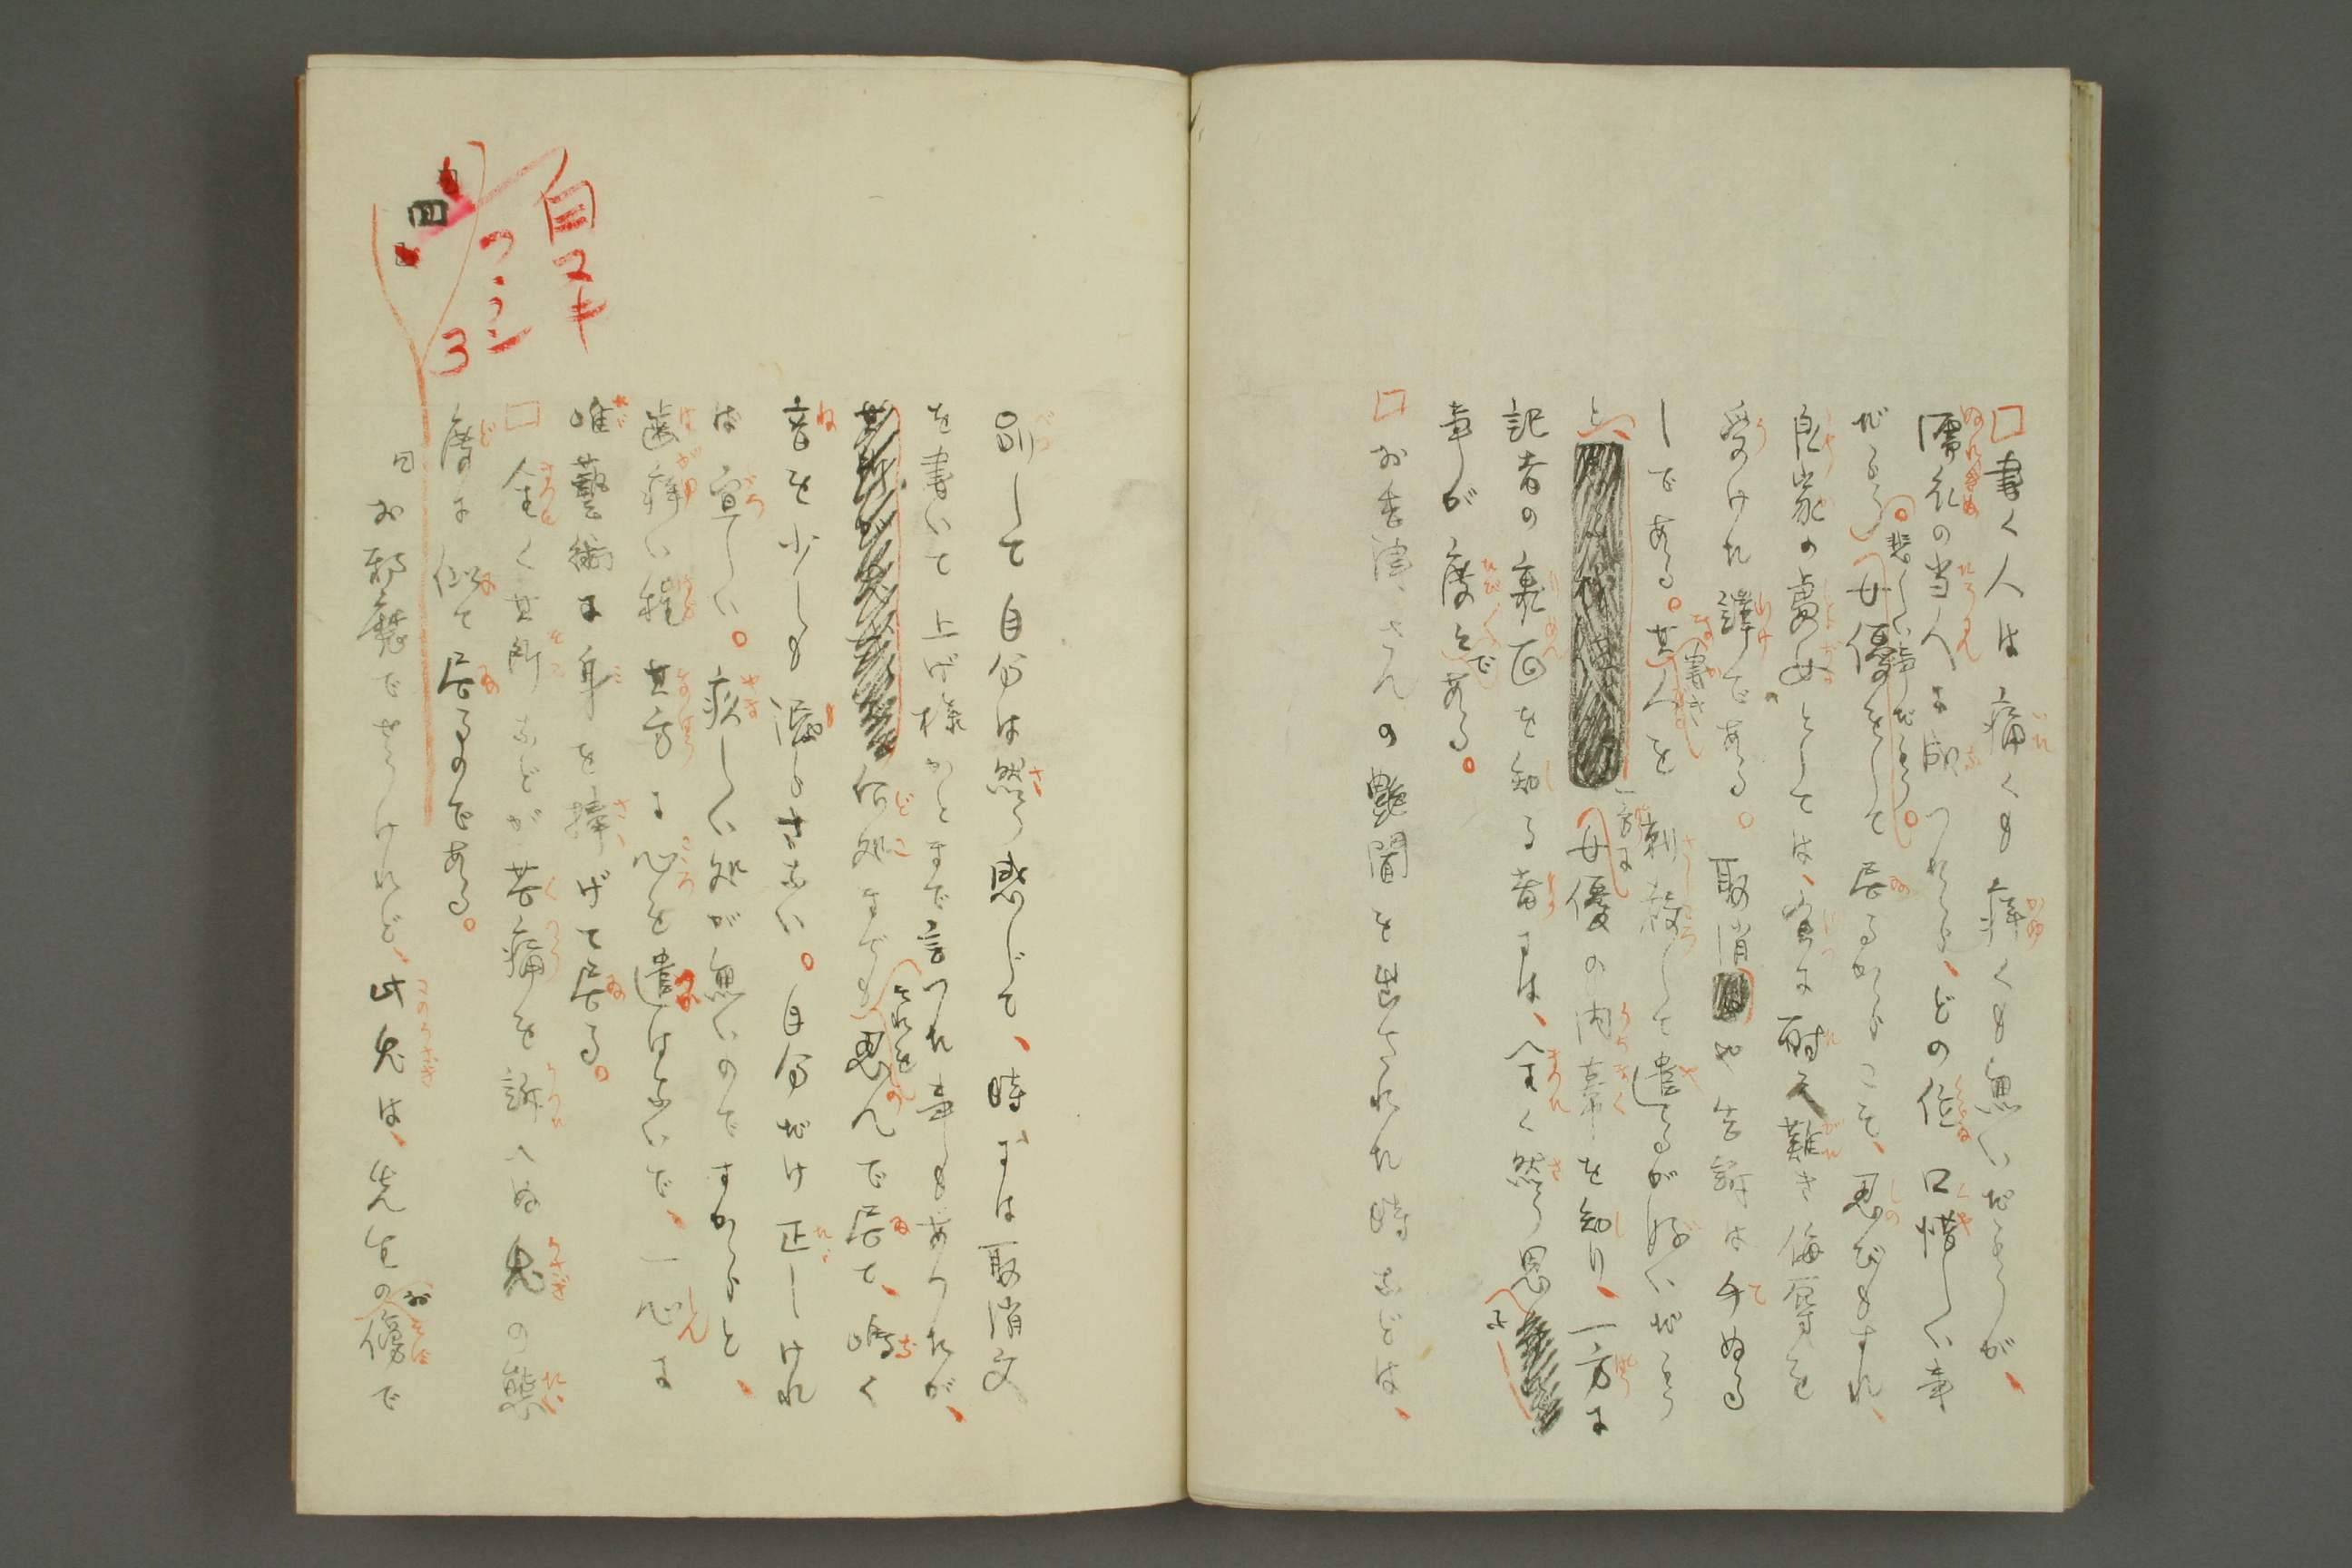 □書く人は痛くも痒くも無いだらうが、
濡衣の当人に成つたら、どの位口惜しい事
だらう。悲しい事だらう。女優をして居るからこそ、忍びもすれ、
良家の處女としては、実に耐え難き侮辱を
受けた譯である。取消や告訴は手ぬる
しである。其書き人を刺殺して遣るが好いだらう
と、一方に女優の内幕を知り、一方に
記者の裏面を知る者には、全く然う思ふ
事が度々である。
□お貞津さんの艶聞を出された時などは、
別して自分は然う感じて、時には取消文
を書いて上げ様かとまで言つた事もあつたが、
何処までもそれを忍んで居て、鳴く
音を少しも洩らさない。自分だけ正しけれ
ば宜しい。疚しい処が無いのですからと、
歯痒い程其方に心を遣はないで、一心に
唯藝術に身を捧げて居る。
□全く其所などが苦痛を訴へぬ兎の態
度に似て居るのである。
□お邪魔でせうけれど、此兎は、先生のお傍で
白ヌキ
つゝき
3
四